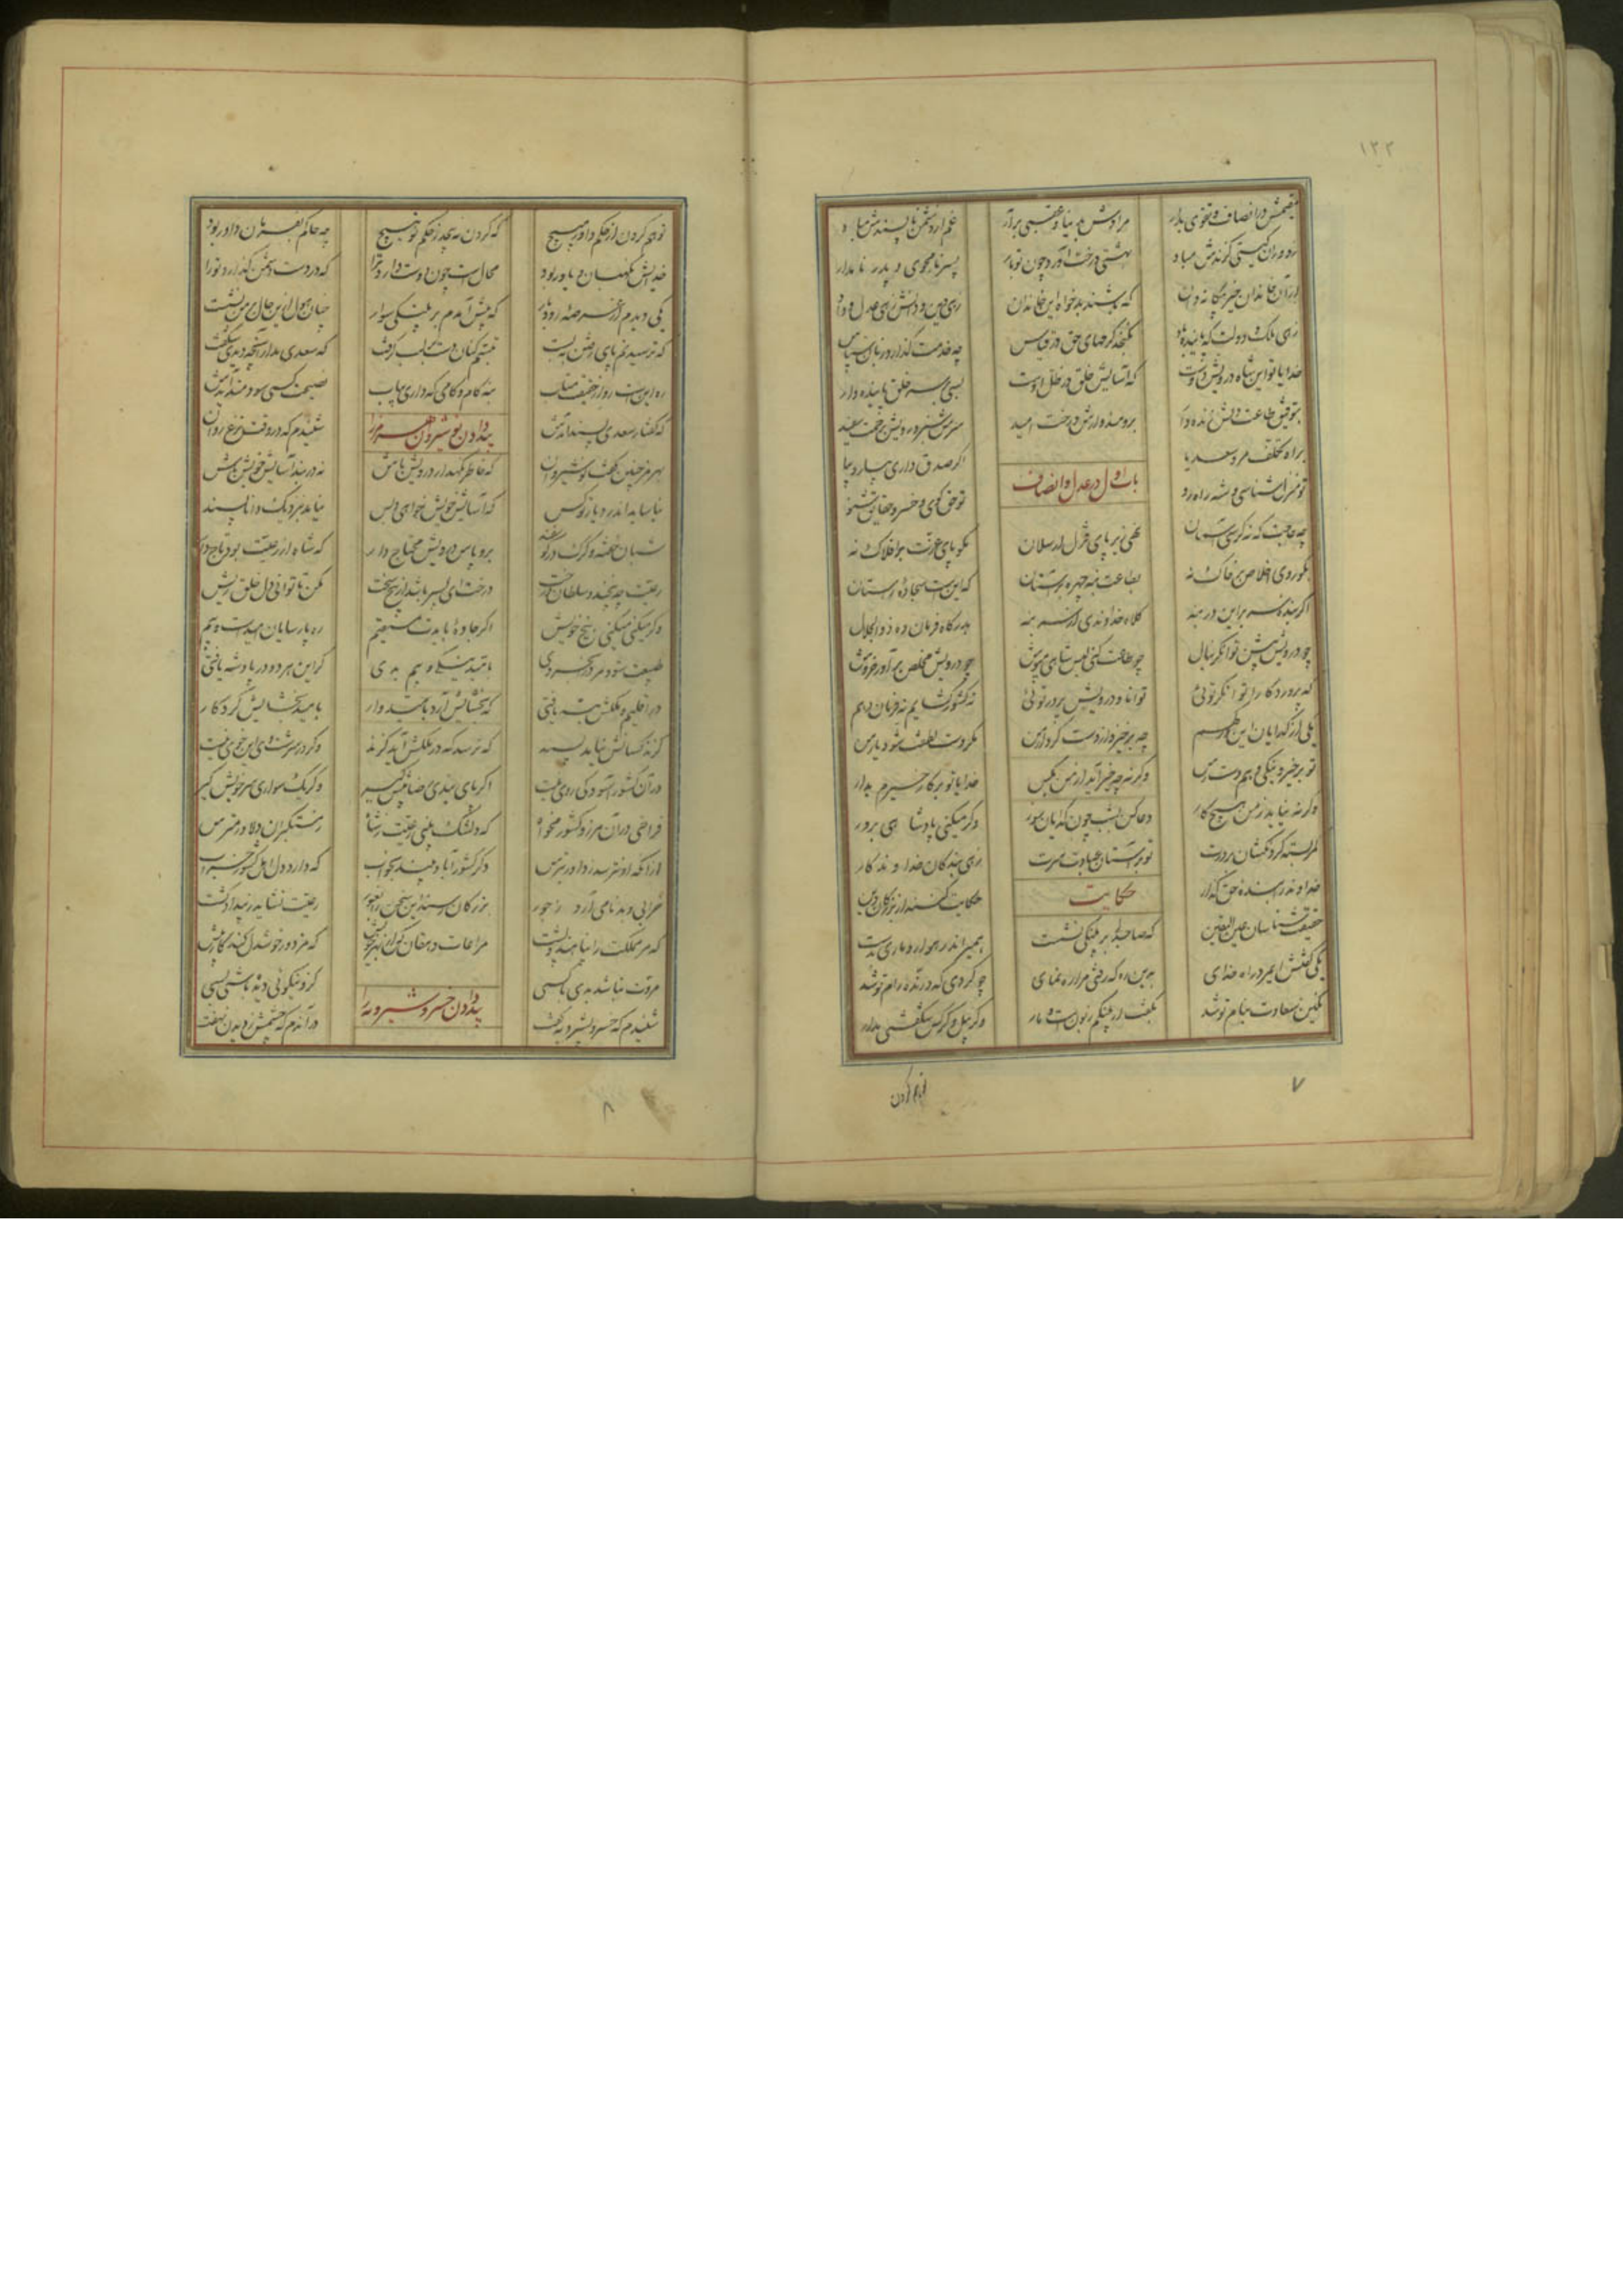 ۱۲۲
مقیمش در انصاف و تقوی بدار مرادش بدنیا و عقبی برآر غم از دشمن ناپسندش مباد
ز دوران گیتی گزندش مباد بهشتی درخت آورد چون تو بار پسر نامجوی و پدر نامدار
از آن خاندان خیر بیگانه دان که باشند بدخواه این خاندان زهی دین و دانش زهی عدل و داد
زهی ملک و دولت که پاینده باد نگنجد کرمهای حق در قیاس چه خدمت گذارد زبان سپاس
خدایا تو این شاه درویش دوست که آسایش خلق در ظل اوست بسی بر سر خلق پاینده دار
بتوفیق طاعت دلش زنده دار برومند دارش درخت امید سرش سبز و رویش برحمت سفید
براه تکلف مرو سعدیا اگر صدق داری بیار و بیا
باب اول در عدل و انصاف
تو منزل شناسی و شه راه رو تو حق گوی و خسرو حقایق شنو
چه حاجت که نه کرسی آسمان نهی زیر پای قزل ارسلان مگو پای عزت بر افلاک نه
بگو روی اخلاص بر خاک نه بطاعت بنه چهره بر آستان که این است سجاده راستان
اگر بنده سر براین در بنه کلاه خداوندی از سر بنه بدرگاه فرمان ده ذوالجلال
چو درویش پیش توانگر بنال چو طاعت کنی لبس شاهی مپوش چو درویش مخلص برآور خروش
که پروردگارا توانگر توئی توانا و درویش پرور توئی نه کشور گشایم نه فرمان دهم
یکی از گدایان این درگهم چه برخیزد از دست کردار من مگر دست لطفت شود یار من
تو بر خیر و نیکی دهم دست رس وگرنه چه خیر آید از من بکس خدایا تو بر کار خیرم بدار
وگرنه نیاید ز من هیچ کار دعا کن بشب چون گدایان بسوز وگر میکنی پادشاهی بروز
کمر بسته گردنکشان بر درت تو بر آستان عبادت سرت زهی بندگان خداوندگار
خداوند را بنده حق گذار
حکایت
حکایت کنند از بزرگان دین
حقیقت شناسان عین الیقین که صاحبدلی بر پلنگی نشست همیراند رهوار و ماری بدست
یکی گفتش ای مرد راه خدای بدین ره که رفتی مرا ره نمای چو کردی که درنده رام تو شد
نگین سعادت بنام تو شد بگفت ار پلنگم زبون است و مار وگر پیل و کرکس شگفتی مدار
تو هم گردن
۷
تو هم گردن از حکم داور مپیچ که گردن نه پیچد ز حکم تو هیچ چه حاکم بفرمان داور بود
خدایش نگهبان و یاور بود محال است چون دوست دارد ترا که در دست دشمن گذارد ترا
یکی دیدم از عرصه رودبار که پیش آمدم بر پلنگی سوار چنان هول ازین حال بر من نشست
که ترسیدنم پای رفتن ببست تبسم کنان دست بر لب گرفت که سعدی مدار آنچه دیدی شگفت
ره این است رو از حقیقت متاب بنه گام و کامی که داری بیاب نصیحت کسی سودمند آیدش
که گفتار سعدی پسند آیدش
پند دادن نوشیروان هرمز را
شنیدم که در وقت نزع روان
بهرمز چنین گفت نوشیروان که خاطر نگهدار درویش باش نه در بند آسایش خویش باش
نیاساید اندر دیار تو کس که آسایش خویش خواهی و بس نیاید بنزدیک دانا پسند
شبان خفته و گرگ در گوسفند برو پاس درویش محتاج دار که شاه از رعیت بود تاج دار
رعیت چه بیخند و سلطان درخت درخت ای پسر باشد از بیخ سخت مکن تا توانی دل خلق ریش
وگر میکنی میکنی بیخ خویش اگر جاده بایدت مستقیم ره پارسایان امیدست و بیم
طبیعت شود مرد را بخردی بامید نیکی و بیم بدی گر این هر دو در پادشه یافتی
در اقلیم و ملکش پنه یافتی که بخشایش آرد بامیدوار بامید بخشایش کردگار
گزند کسانش نیاید پسند که ترسد که در ملکش آید گزند وگر در سرشت وی این خوی نیست
در آن کشور آسودگی روی نیست اگر پای بندی رضا پیش گیر وگر یک سواری سر خویش گیر
فراخی در آن مرز و کشور مخواه که دلتنگ بینی رعیت ز شاه ز مستکبران دلاور مترس
از آنکه او نترسد ز داور بترس دگر کشور آباد بیند بخواب که دارد دل اهل کشور خراب
خرابی و بدنامی آرد ز جور بزرگان رسند این سخن را بغور رعیت نشاید ز بیداد کشت
که مر مملکت را پناهند و پشت مراعات دهقان کن از بهر خویش که مزدور خوشدل کند کار بیش
مروت نباشد بدی با کسی کزو نیکوئی دیده باشی بسی
پند دادن خسرو شیرویه را
شنیدم که خسرو بشیرویه گفت در آندم که چشمش ز دیدن نهفت
۸